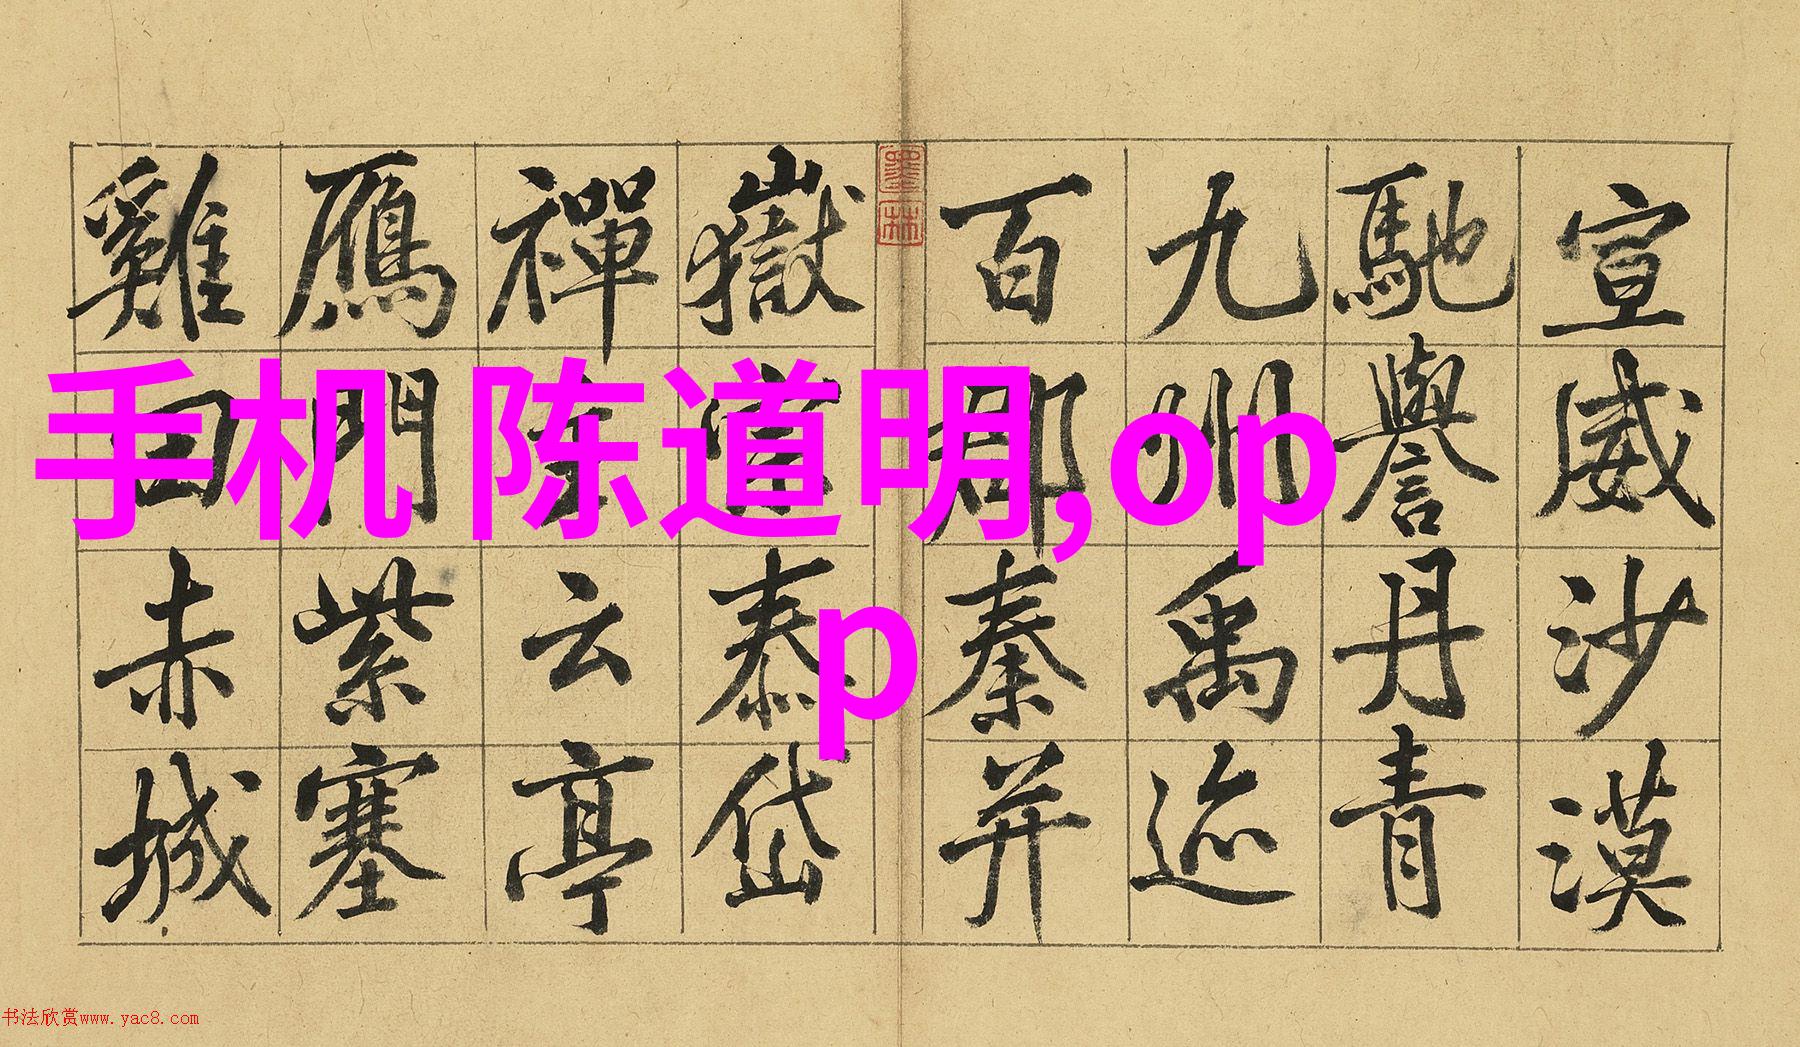 手机 陈道明,op
p
宣威沙漠
馳譽丹青
九州禹迹
百郡秦并
墨林
嶽宗泰岱
禪主云亭
鴈門紫塞
雞田赤城
书法欣赏www.yac8.com